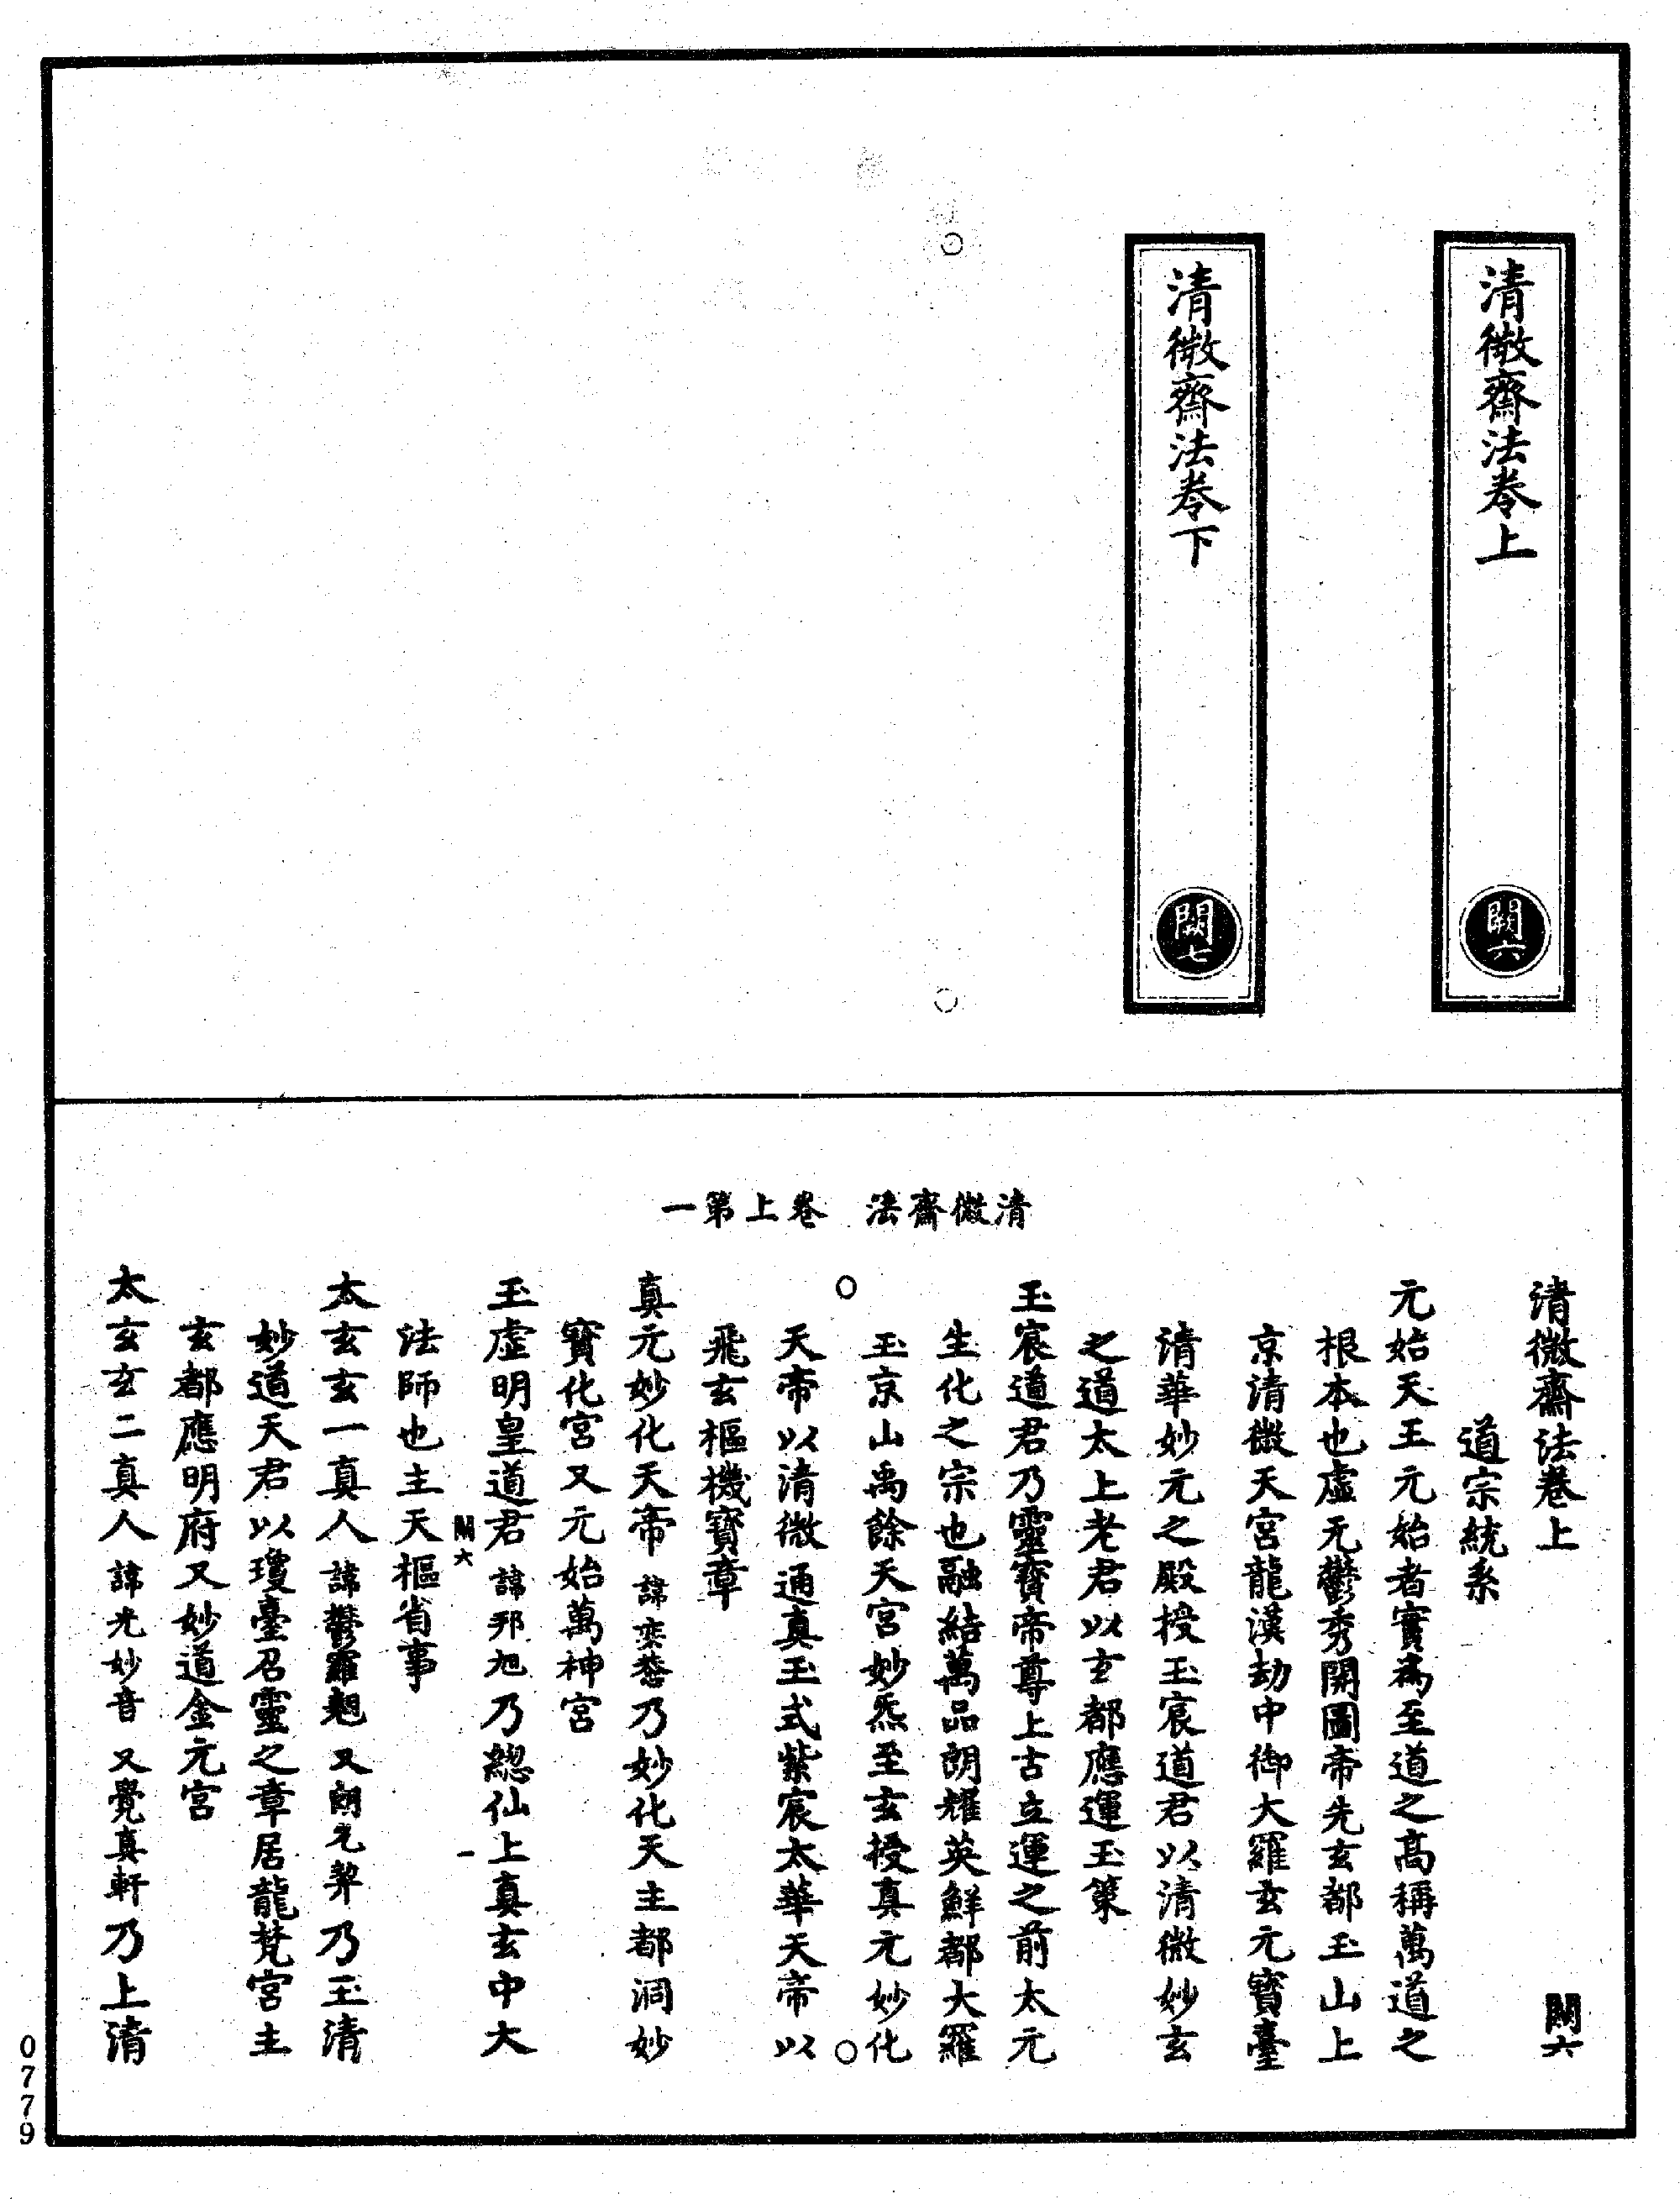 清微齋法卷上
闕六
清微齋法卷下
闕七
清微齋法　卷上第一
清微齋法卷上　闕六
道宗統系
元始天王元始者實為至道之高稱萬道之
根本也虛无鬱秀開圖帝先玄都玉山上
京清微天宮龍漢劫中御大羅玄元寶臺
清華妙元之殿授玉宸道君以清微妙玄
之道太上老君以玄都應運玉策
玉宸道君乃靈寶帝尊上古立運之前太元
生化之宗也融結萬品朗耀英鮮都大羅
玉京山禹餘天宮妙炁至玄授真元妙化
天帝以清微通真玉式紫宸太華天帝以
飛玄樞機寶章
真元妙化天帝諱乃妙化天主都洞妙
寶化宮又元始萬神宮
玉虛明皇道君諱邦旭乃總仙上真玄中大
闕六　一
法師也主天樞省事
太玄玄一真人諱鬱羅翹又朗乃玉清
妙道天君以瓊臺召靈之章居龍梵宮主
玄都應明府又妙道金元宮
太玄玄二真人諱光妙音又覺真軒乃上清
0779